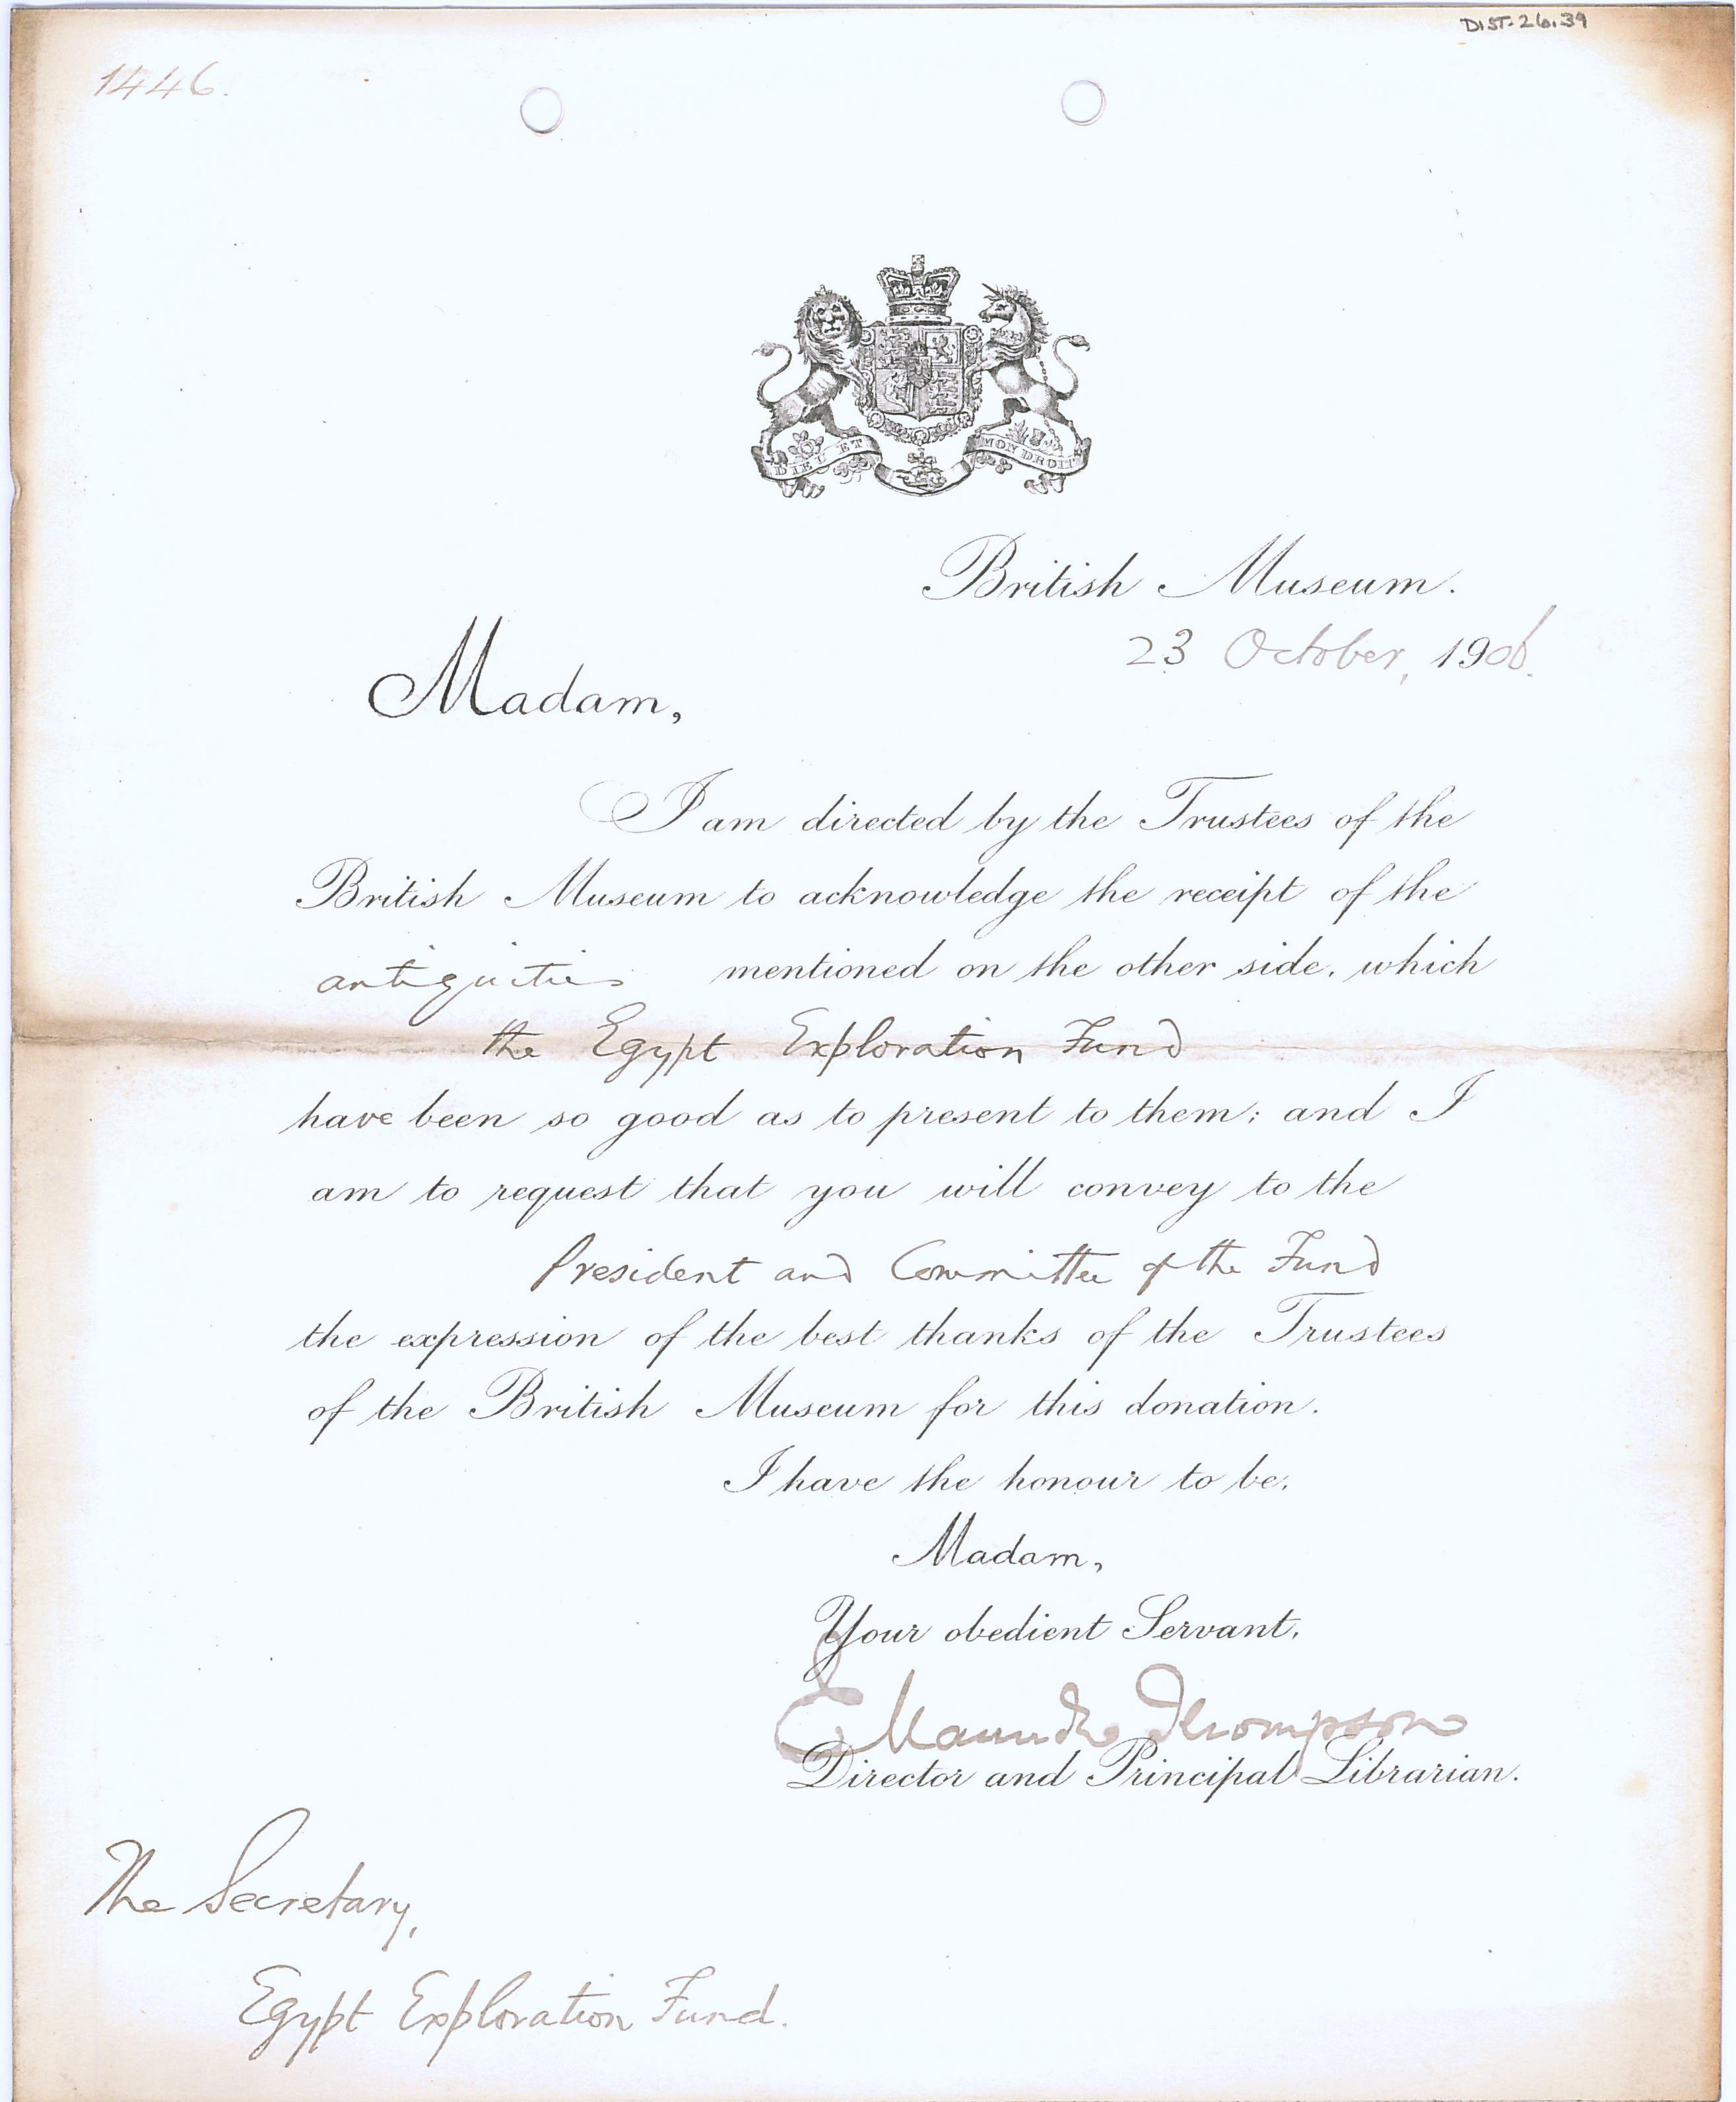 DIST. 26.39
1446.
DIEU ET MON DROIT
British Museum.
23 October, 1906.
Madam,
I am directed by the Trustees of the
British Museum to acknowledge the receipt of the
antiquities mentioned on the other side, which
the Egypt Exploration Fund
have been so good as to present to them; and I
am to request that you will convey to the
President and Committee of the Fund
the expression of the best thanks of the Trustees
of the British Museum for this donation.
I have the honour to be,
Madam,
Your obedient Servant,
E Maunde Thompson
Director and Principal Librarian.
The Secretary,
Egypt Exploration Fund.